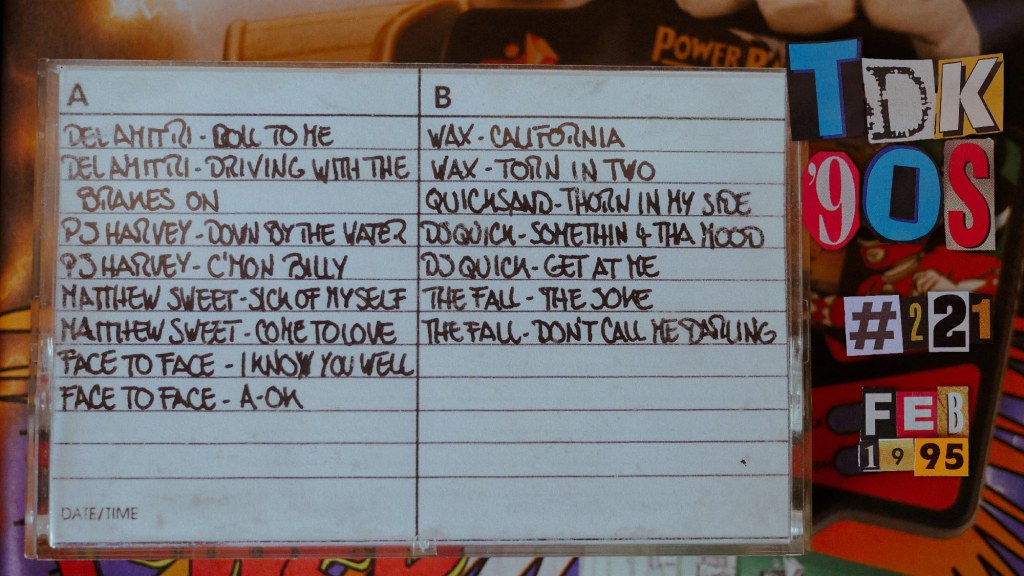 POWER RA
A
DEL AMITRI - ROLL TO ME
DEL AMITRI - DRIVING WITH THE
BRAKES ON
PJ HARVEY - DOWN BY THE WATER
PJ HARVEY - C'MON BILLY
MATTHEW SWEET - SICK OF MYSELF
MATTHEW SWEET - COME TO LOVE
FACE TO FACE - I KNOW YOU WELL
FACE TO FACE - A-OK
DATE/TIME
B
WAX - CALIFORNIA
WAX - TORN IN TWO
QUICKSAND - THORN IN MY SIDE
DJ QUICK - SOMETHIN 4 THA MOOD
DJ QUICK - GET AT ME
THE FALL - THE JOKE
THE FALL - DON'T CALL ME DARLING
TDK
'90S
#221
FEB
1995